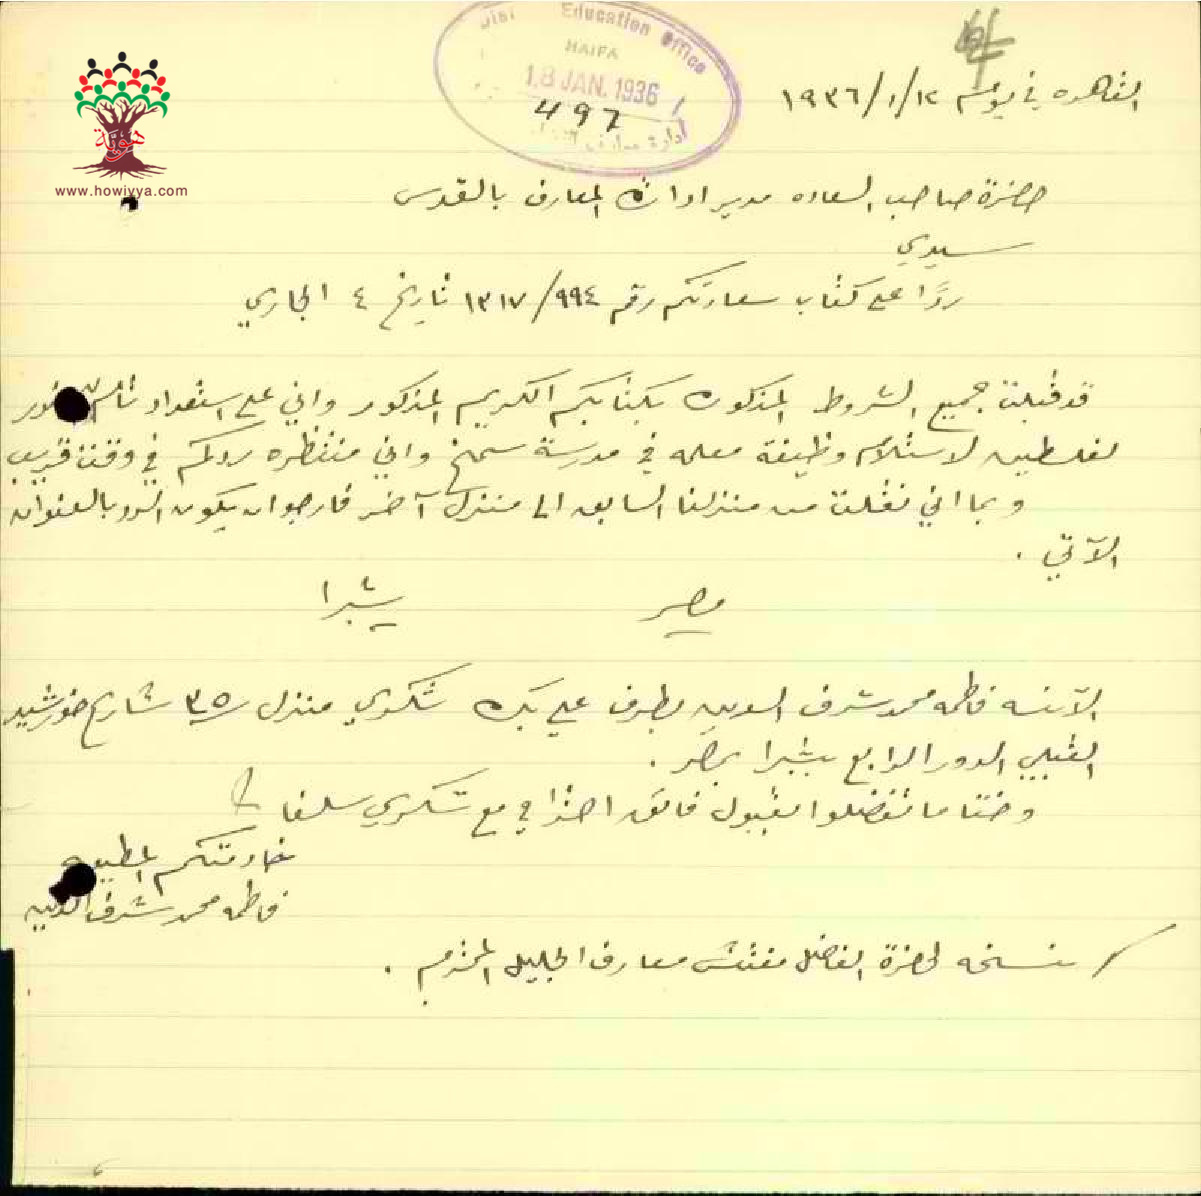 Education Office
HAIFA
18 JAN. 1936
497
ادارة معارف
هوية
www.howiyya.com
القاهره في يوم ١٢/١/١٩٣٦
حضرة صاحب السعاده مدير ادارة المعارف بالقدس
سيدي
ردًا على كتاب سعادتكم رقم ٩٩٤/١٣١٧ تاريخ ٤ الجاري
قد قبلت جميع الشروط المذكوره بكتابكم الكريم المذكور واني على استعداد تام
لفلسطين لاستلام وظيفة معلمه في مدرسة سمخ واني منتظره ردكم في وقت قريب
وبما اني نقلت من منزلنا السابق الى منزل آخر فارجو ان يكون الرد بالعنوان
الآتي .
مصر شبرا
الآنسه فاطمه محمد شرف الدين بطرف علي بك شكري منزل ٣٥ شارع خورشيد
القبلي الدور الرابع بشبرا بمصر .
وختاما تفضلوا بقبول فائق احترامي مع شكري سلفا
خادمتكم المطيعه
فاطمه محمد شرف الدين
نسخه لحضرة الفاضل مفتش معارف الجليل المحترم .